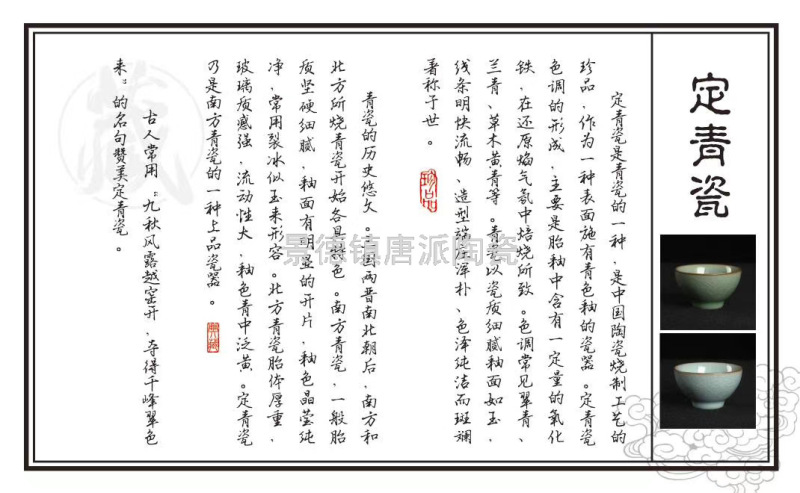 定青瓷
定青瓷是青瓷的一种，是中国陶瓷烧制工艺的
珍品，作为一种表面施有青色釉的瓷器。定青瓷
色调的形成，主要是胎釉中含有一定量的氧化
铁，在还原焰气氛中焙烧所致。色调常见翠青、
兰青、草木黄青等。青瓷以瓷质细腻釉面如玉，
线条明快流畅、造型端庄浑朴、色泽纯洁而斑斓
著称于世。
珍品
青瓷的历史悠久。
国两晋南北朝后，南方和
北方所烧青瓷开始各具特色。南方青瓷，一般胎
质坚硬细腻，釉面有明显的开片，釉色晶莹纯
净，常用裂冰似玉来形容。北方青瓷胎体厚重，
玻璃质感强，流动性大，釉色青中泛黄。定青瓷
乃是南方青瓷的一种上品瓷器。
古人常用“九秋风露越窑开，夺得千峰翠色
来”的名句赞美定青瓷。
藏
景德镇唐派陶瓷